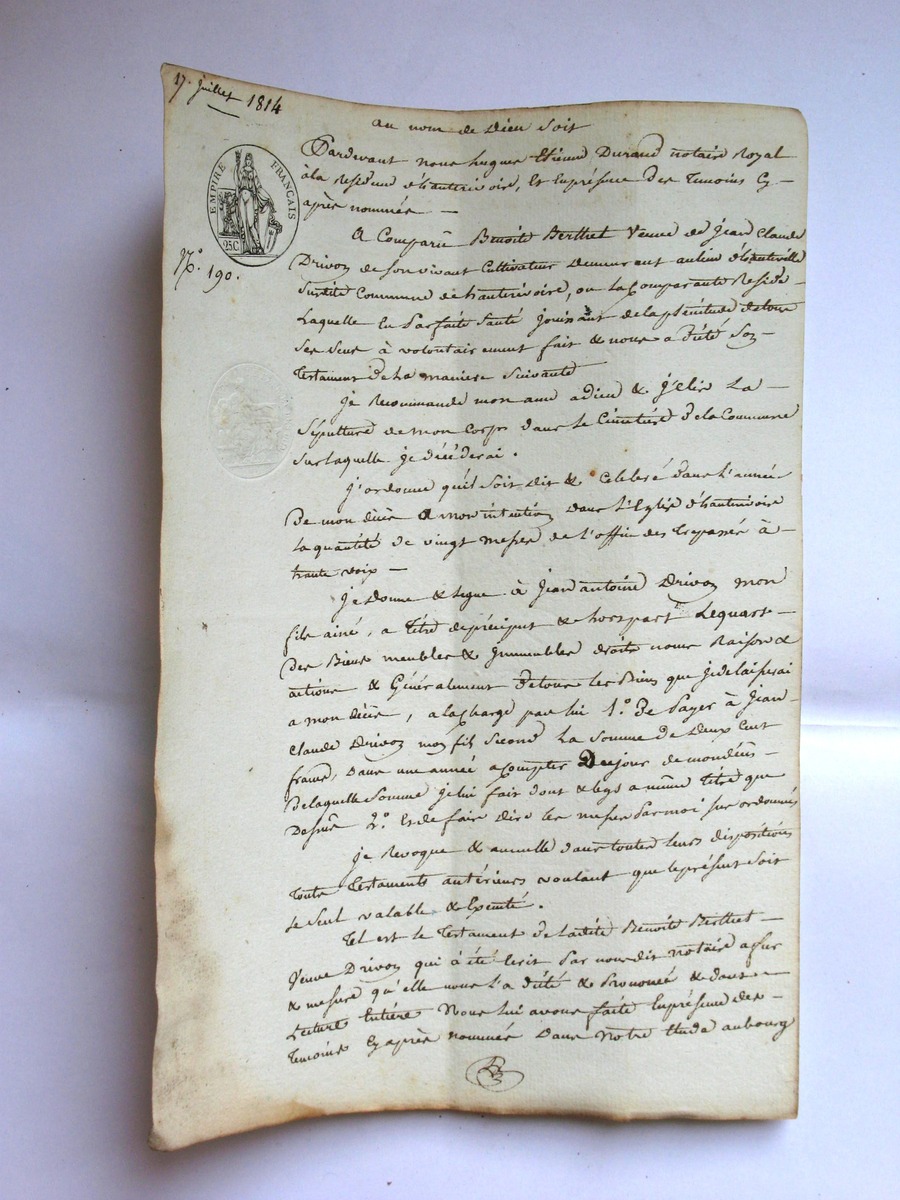 17. juillet 1814
au nom de Dieu soit
EMPIRE FRANÇAIS
25.C
N.° 190.
Pardevant nous hugues Etienne Durand notaire Royal
à la Residence d'hauterivoire, Et En présence des Temoins Cy
après nommés —
A Comparû Benoite Berthet Veuve de Jean Claude
Drivon de son vivant Cultivateur demeurant au lieu
susdite Commune de hauterivoire, ou la Comparante Reside
Laquelle En parfaite santé jouissant de la plénitude de tous
ses sens à volontairement fait & nous a dicté son
Testament de la maniere suivante
je Recommande mon ame a dieu & j'elis La
sépulture de mon Corps dans le Cimetière de la Commune
sur laquelle je décéderai.
j'ordonne qu'il soit dit & Celebré dans l'année
de mon décès a mon intention dans l'Eglise d'hauterivoire
la quantité de vingt messes de l'office des Trepassés à
haute voix —
je donne & legue à Jean antoine Drivon mon
fils ainé, a titre de préciput & hors part Le quart
des Biens meubles & immeubles droits noms Raisons &
actions & Généralement de tous les Biens que je delaisserai
a mon décès, a la Charge par lui 1.° De Payer à Jean
Claude Drivon mon fils second La somme de Deux Cent
francs, dans une année a Compter du jour de mon décès
de laquelle somme je lui fait dont & legs a même titre que
dessus 2.° Et de faire dire les messes par moi sus ordonnés
je Revoque & annulle dans toutes leurs dispositions
tous Testaments antérieurs voulant que le présent soit
le seul valable & Executé.
Tel est le Testament de ladite Benoite Berthet
Veuve Drivon qui à été Ecrit par nous dit notaire a fur
& mesure qu'elle nous l'a dicté & Prononcé & dont
Lecture Entière Nous lui avons faite En présence des
Temoins Cy après nommés Dans Notre Etude au bourg